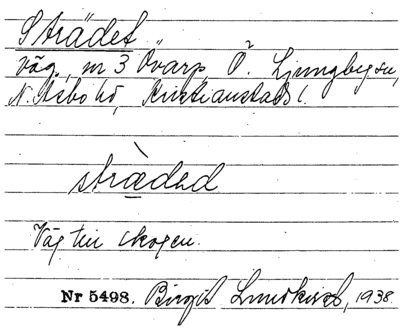 Strädet
väg, nr 3 Övarp, Ö. Ljungby sn,
N. Åsbo hd, Kristianstads l.
strädad
Väg till skogen.
Nr 5498. Birgit Lundkvist, 1938